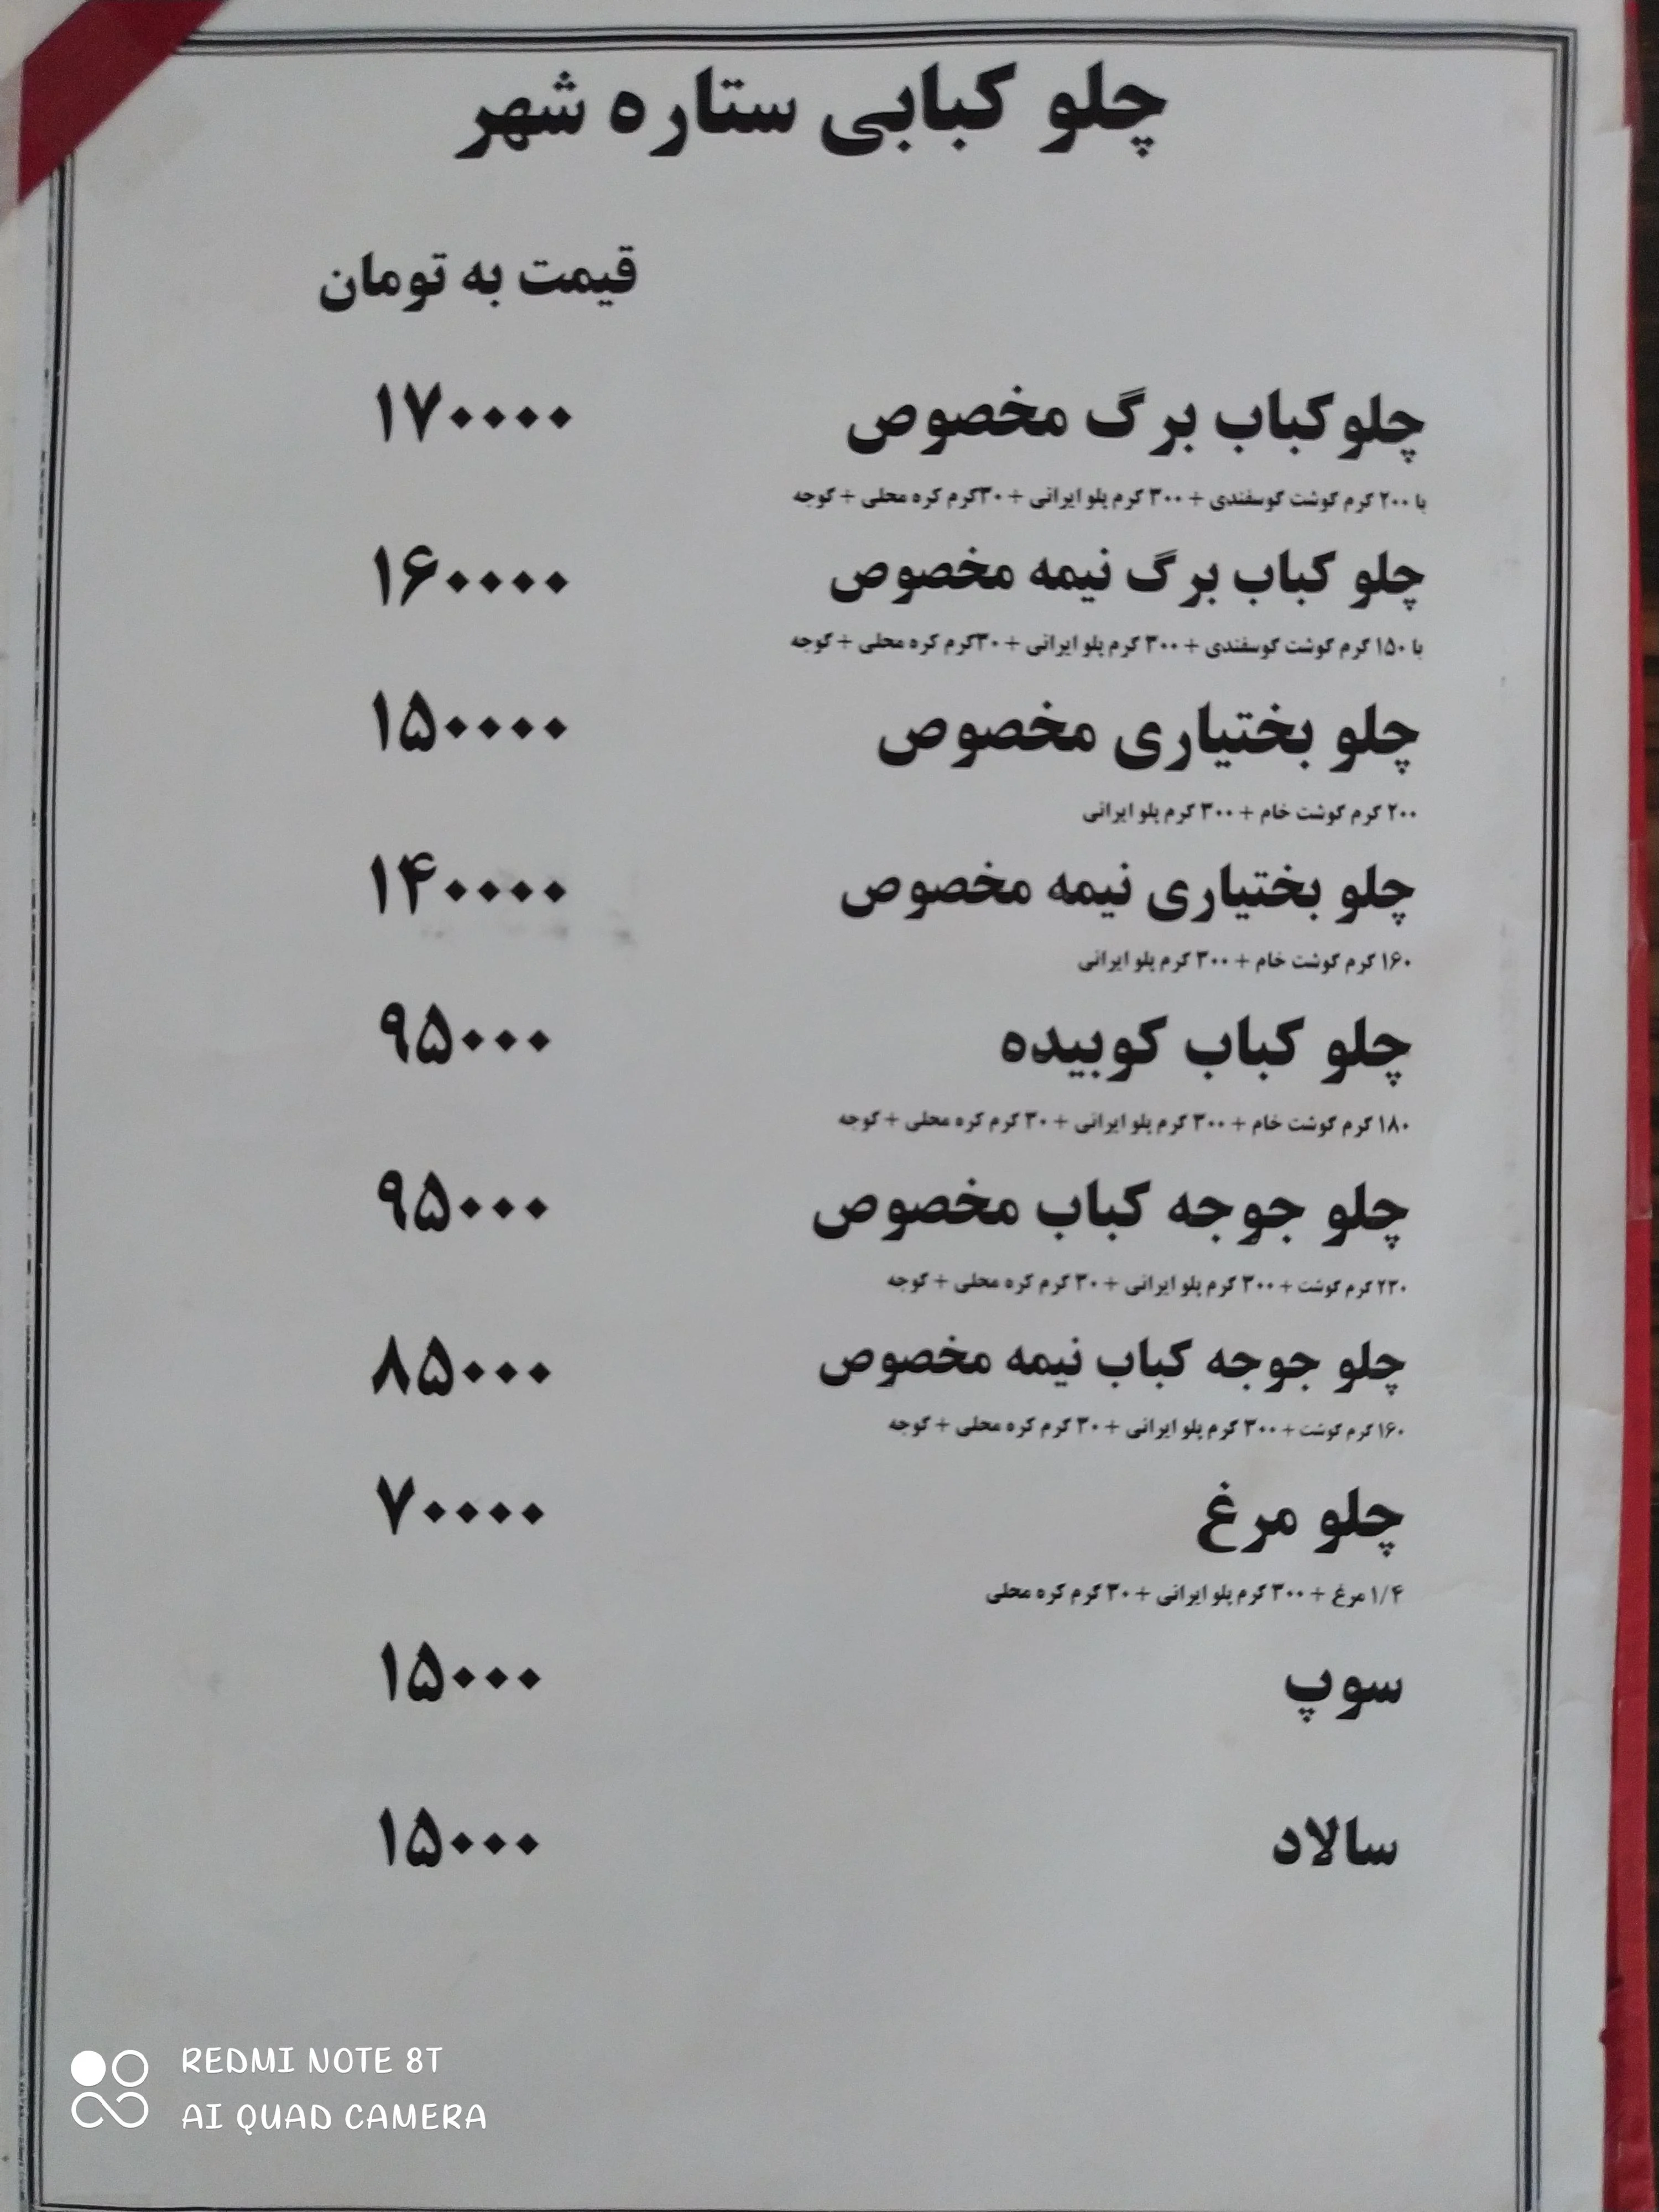 چلو کبابی ستاره شهر
قیمت به تومان
چلوکباب برگ مخصوص ۱۷۰۰۰۰
با ۲۰۰ گرم گوشت گوسفندی + ۳۰۰ گرم پلو ایرانی + ۳۰گرم کره محلی + گوجه
چلو کباب برگ نیمه مخصوص ۱۶۰۰۰۰
با ۱۵۰ گرم گوشت گوسفندی + ۳۰۰ گرم پلو ایرانی + ۳۰گرم کره محلی + گوجه
چلو بختیاری مخصوص ۱۵۰۰۰۰
۲۰۰ گرم گوشت خام + ۳۰۰ گرم پلو ایرانی
چلو بختیاری نیمه مخصوص ۱۴۰۰۰۰
۱۶۰ گرم گوشت خام + ۳۰۰ گرم پلو ایرانی
چلو کباب کوبیده ۹۵۰۰۰
۱۸۰ گرم گوشت خام + ۳۰۰ گرم پلو ایرانی + ۳۰ گرم کره محلی + گوجه
چلو جوجه کباب مخصوص ۹۵۰۰۰
۲۳۰ گرم گوشت + ۳۰۰ گرم پلو ایرانی + ۳۰ گرم کره محلی + گوجه
چلو جوجه کباب نیمه مخصوص ۸۵۰۰۰
۱۶۰ گرم گوشت + ۳۰۰ گرم پلو ایرانی + ۳۰ گرم کره محلی + گوجه
چلو مرغ ۷۰۰۰۰
۱/۴ مرغ + ۳۰۰ گرم پلو ایرانی + ۳۰ گرم کره محلی
سوپ ۱۵۰۰۰
سالاد ۱۵۰۰۰
REDMI NOTE 8T
AI QUAD CAMERA